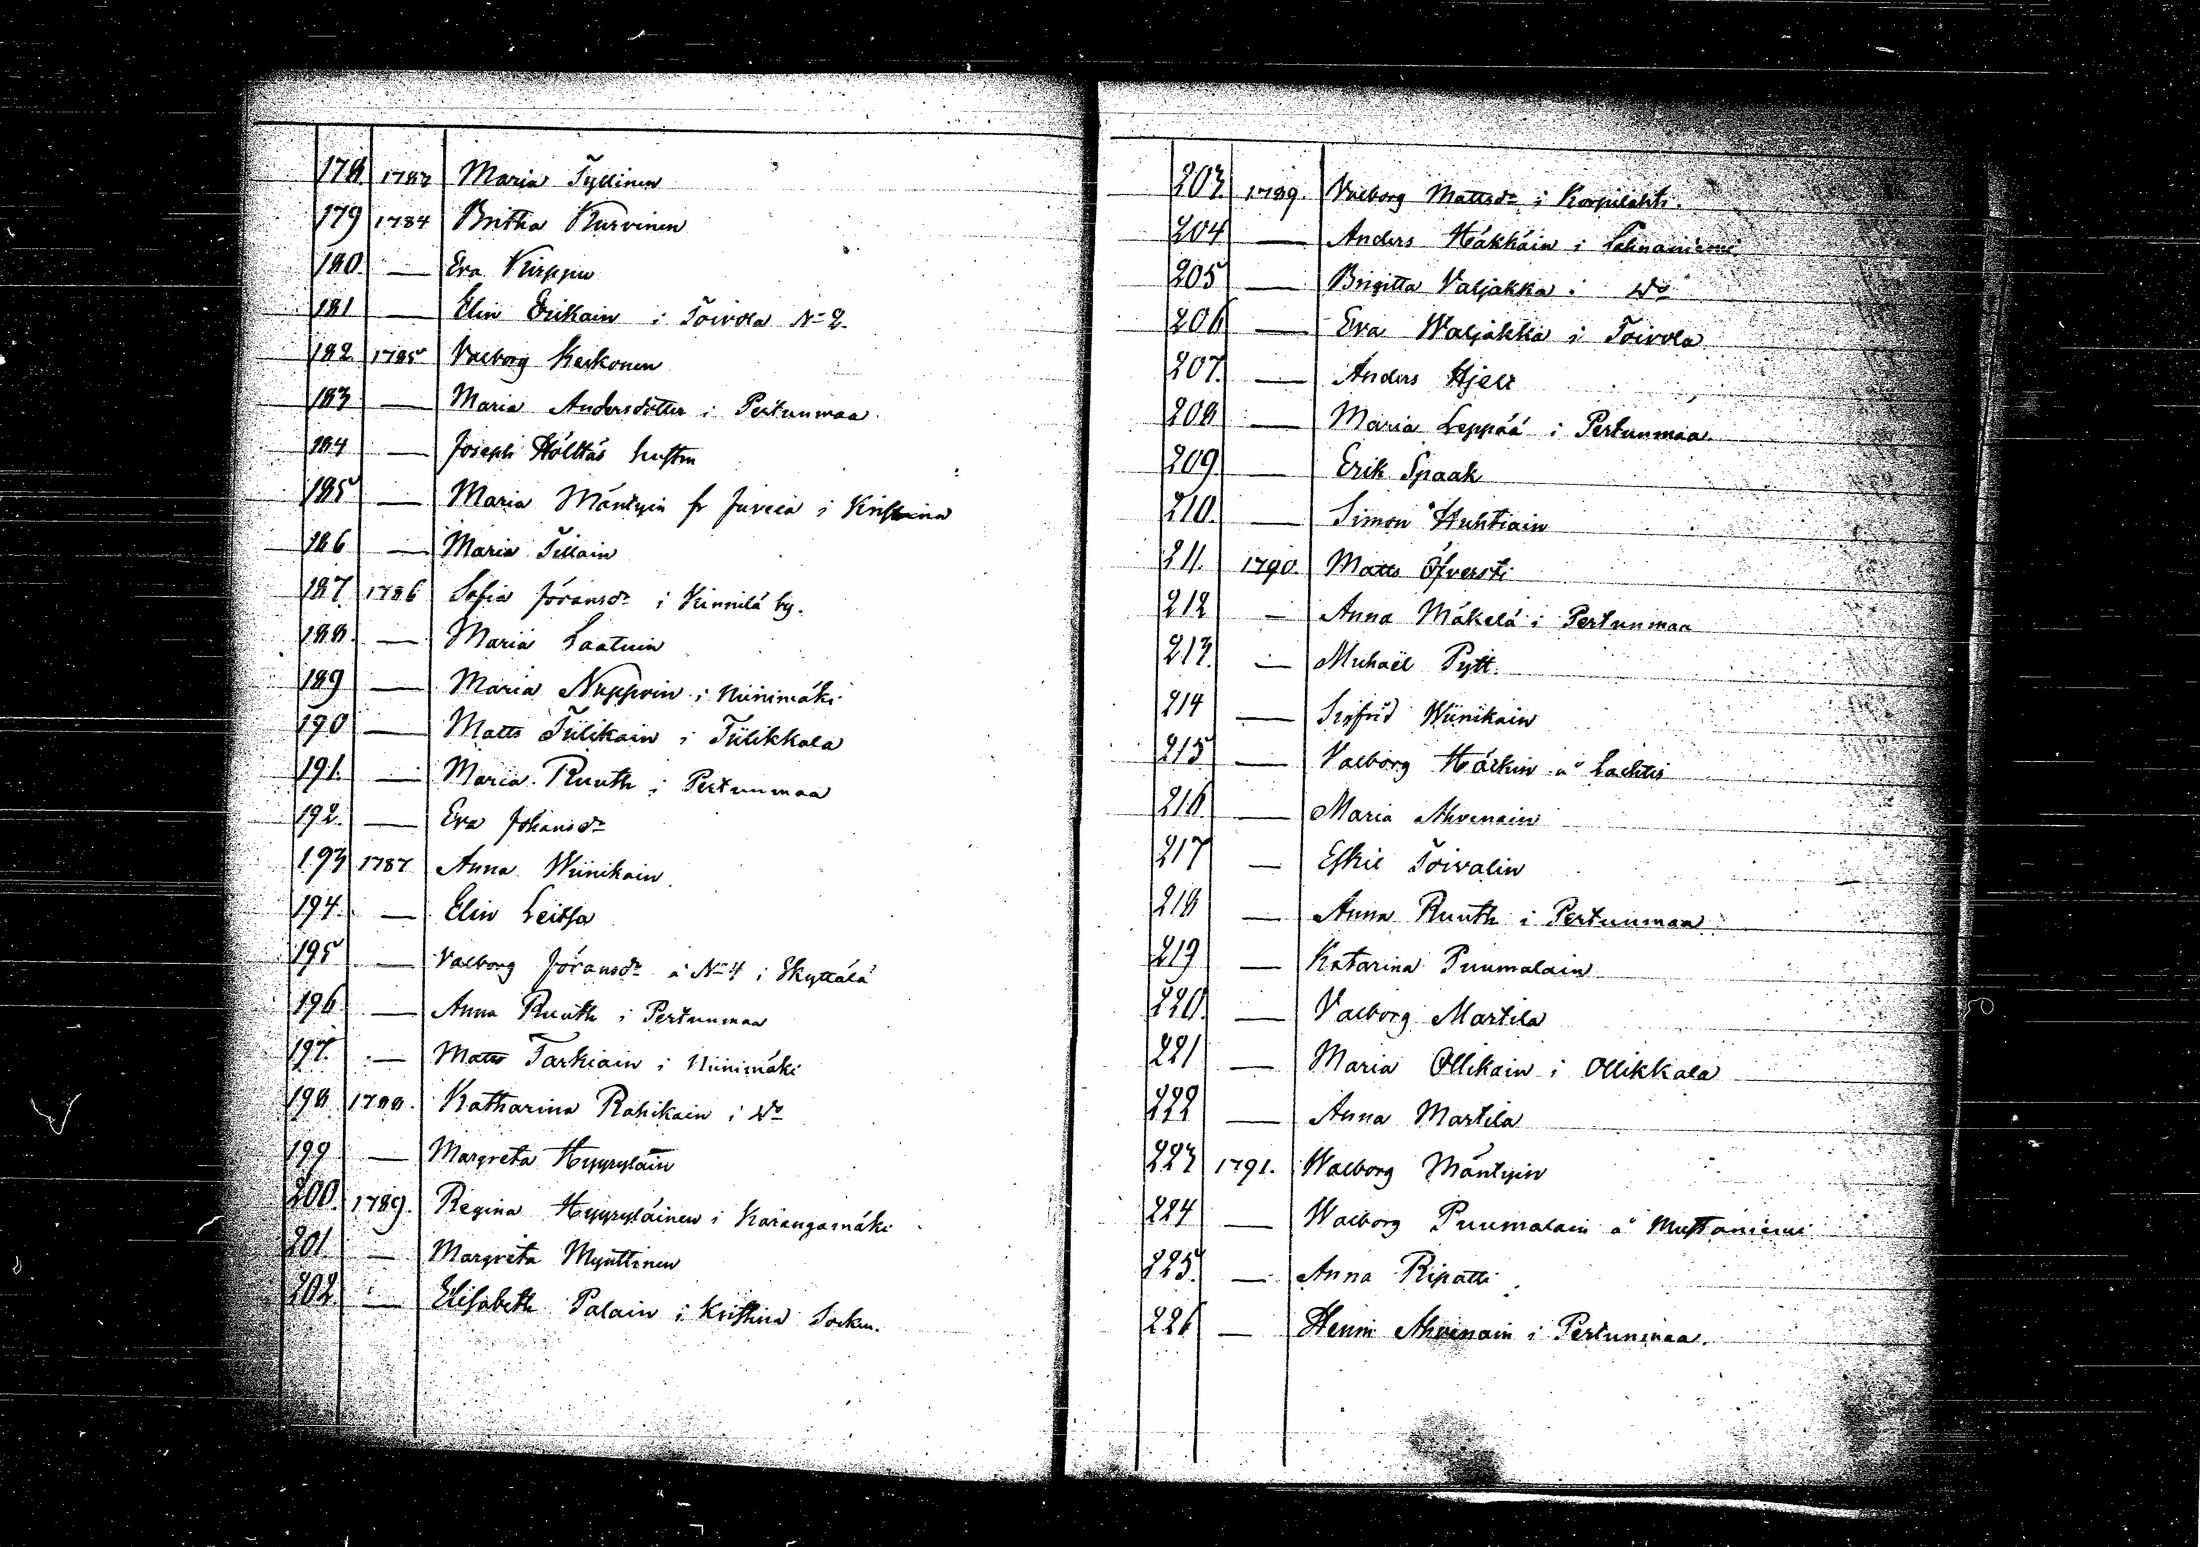 178 1783 Maria Tyllinen
179 1784 Britha Kurvinen
180 — Eva Kirppu
181 — Elin Erikain i Toivola N=2.
182. 1785 Valborg Keskonen
183 — Maria Andersdotter i Pertunmaa
184 — Joseph Hölttäs hustru
185 — Maria Mäntyin fr Juveia i Kristina
186 — Maria Tillain
187. 1786 Sofia Jöransdr i Kinnilä by.
188. — Maria Laatuin
189 — Maria Nuppoin i Niinimäki
190 — Matts Tiilikain i Tiilikkala
191. — Maria Ruuth i Pertunmaa
192. — Eva Johansdr
193 1787 Anna Wiinikain
194. — Elin Leitsa
195 — Valborg Jöransdr å N=4 i Skyttälä
196 — Anna Ruuth i Pertunmaa
197. — Matts Tarkiain i Niinimäki
198 1788. Katharina Rahikain i Do
199 — Margreta Hyyryläin
200. 1789. Regina Hyyryläinen i Karangamäki
201. — Margreta Mynttinen
202. — Elisabeth Palain i Kristina Sockn.
203. 1789. Valborg Mattsdr i Korpilahti.
204 — Anders Häkkäin i Lahnaniemi
205 — Brigitta Valjakka i Do
206 — Eva Waljakka i Toivola
207. — Anders Hjelt
208 — Maria Leppää i Pertunmaa.
209 — Erik Spaak
210. — Simon Huhtiain
211. 1790. Matts Öfversti
212 — Anna Mäkelä i Pertunmaa
213. — Michaël Pytt.
214 — Sigfrid Wiinikain
215 — Valborg Häckin å Lachtis
216 — Maria Ahvenain
217 — Eskil Toivalin
218 — Anna Ruuth i Pertunmaa
219 — Katarina Puumalain
220. — Valborg Martila
221 — Maria Ollikain i Ollikkala
222 — Anna Martila
223 1791. Walborg Mäntyin
224 — Walborg Puumalain å Mustaniemi
225. — Anna Ripatti
226 — Henri Ahvenain i Pertunmaa.